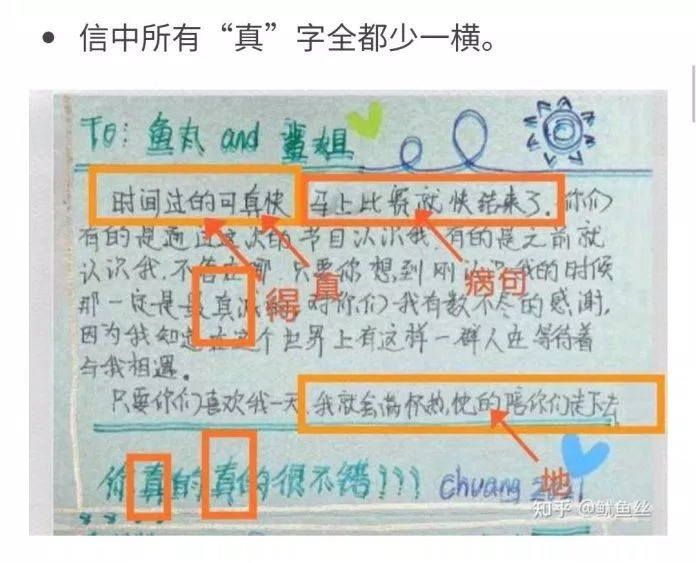 信中所有“真”字全都少一横。
To: 鱼丸 and 蛋姐
时间过的可真快 马上比赛就快结束了. 你们
有的是通过这次的节目认识我, 有的是之前就
认识我, 不管在哪 只要你想到刚认识我的时候
那一定是最真 的, 对你们 我有数不尽的感谢,
得 真 病句
因为我知道在这个世界上有这样一群人在等待着
与我相遇。
只要你们喜欢我一天, 我就会满怀热忱的陪你们走下去
地
你真的真的很不错!!! chuang 2021
知乎 @鱿鱼丝